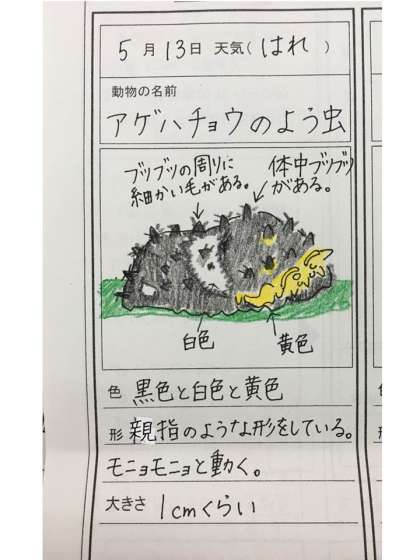 5月13日 天気(はれ)
動物の名前
アゲハチョウのよう虫
ブツブツの周りに
細かい毛がある。
体中ブツブツ
がある。
白色
黄色
色 黒色と白色と黄色
形 親指のような形をしている。
モニョモニョと動く。
大きさ 1cmくらい